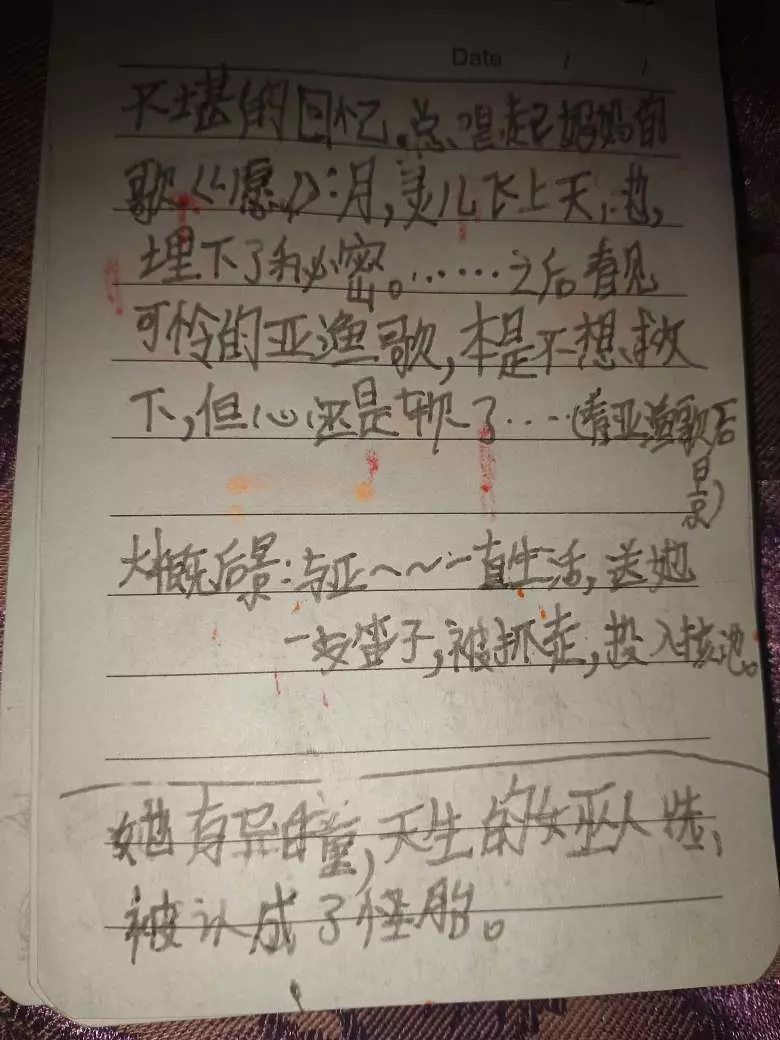 Date / /
不堪的回忆,总是想起妈妈的
歌《心愿》:月,美儿飞上天,她,
埋下了秘密。……之后看见
可怜的亚渔歌,本是不想救
下,但心还是软了……(看亚渔歌后
景)
大概后景:与亚~~一直生活,送她
一支笛子,被抓走,投入核池。
她有异瞳,天生的女巫人选,
被认成了怪胎。